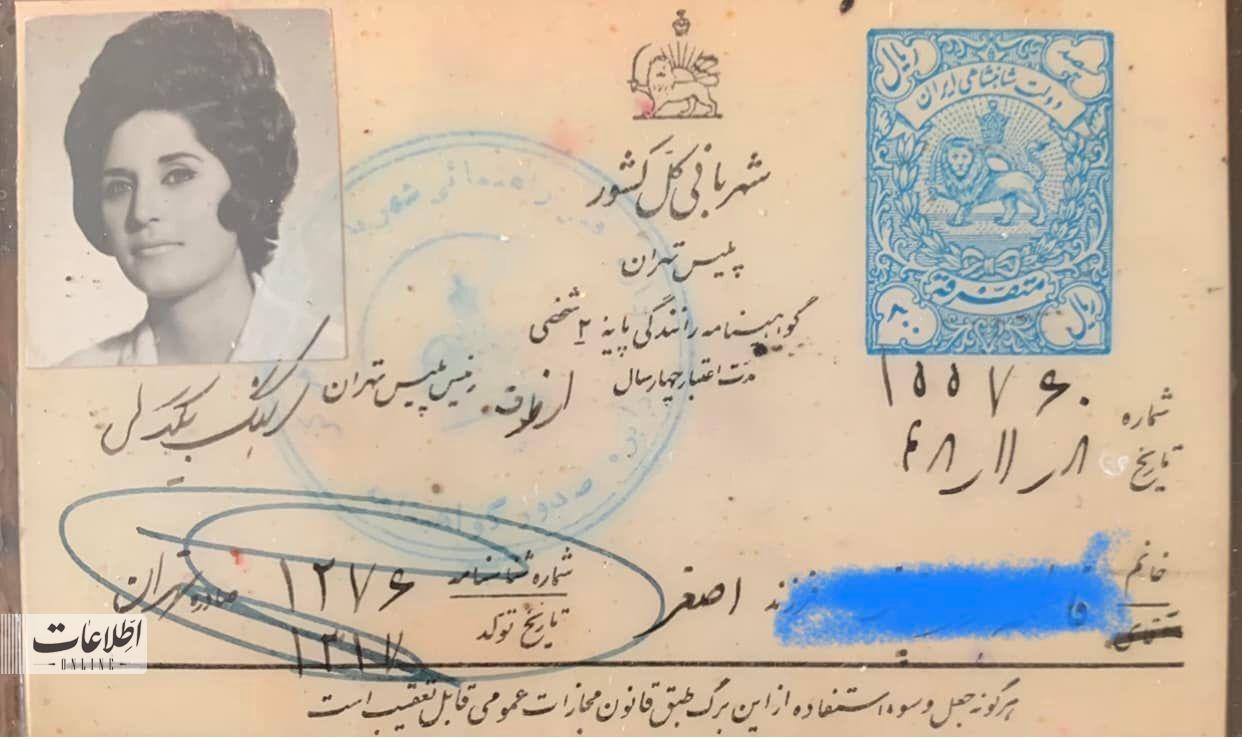 شهربانی کل کشور
پلیس تهران
گواهینامه رانندگی پایه ۲ شخصی
مدت اعتبار چهار سال
از طرف رئیس پلیس تهران
سرهنگ بیگدلی
ریال
دولت شاهنشاهی ایران
متفرقه
۸۰۰
ریال
شماره ۱۵۵۷۶۰
تاریخ ۴۸٫۱۱٫۸
خانم
فرزند اصغر
شماره شناسنامه ۱۲۷۶ صادره تهران
تاریخ تولد ۱۳۱۷
هرگونه جعل و سوء استفاده از این برگ طبق قانون مجازات عمومی قابل تعقیب است
اطلاعات
ONLINE